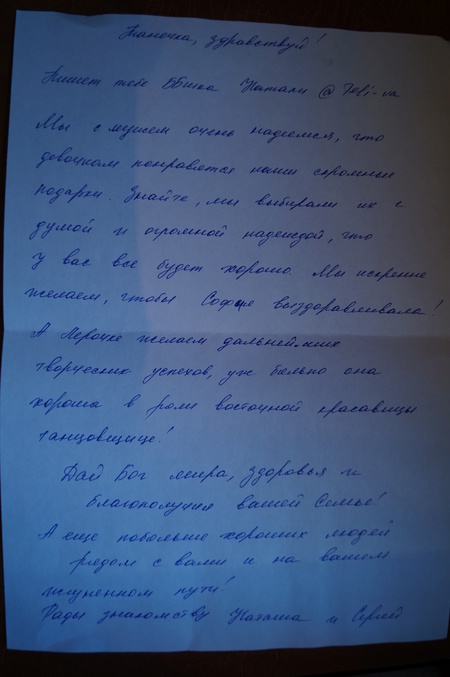 Танечка, здравствуй!
Пишет тебе ББшка Натали @ Tefi-va
Мы с мужем очень надеемся, что
девочкам понравятся наши скромные
подарки. Знайте, мы выбирали их с
думой и огромной надеждой, что
у вас все будет хорошо. Мы искренне
желаем, чтобы Софие выздоравливала!
А Лерочке желаем дальнейших
творческих успехов, уж больно она
хороша в роли восточной красавицы
танцовщице!
Дай Бог мира, здоровья и
благополучия вашей семье!
А еще побольше хороших людей
рядом с вами и на вашем
жизненном пути!
Рады знакомству Наташа и Сергей